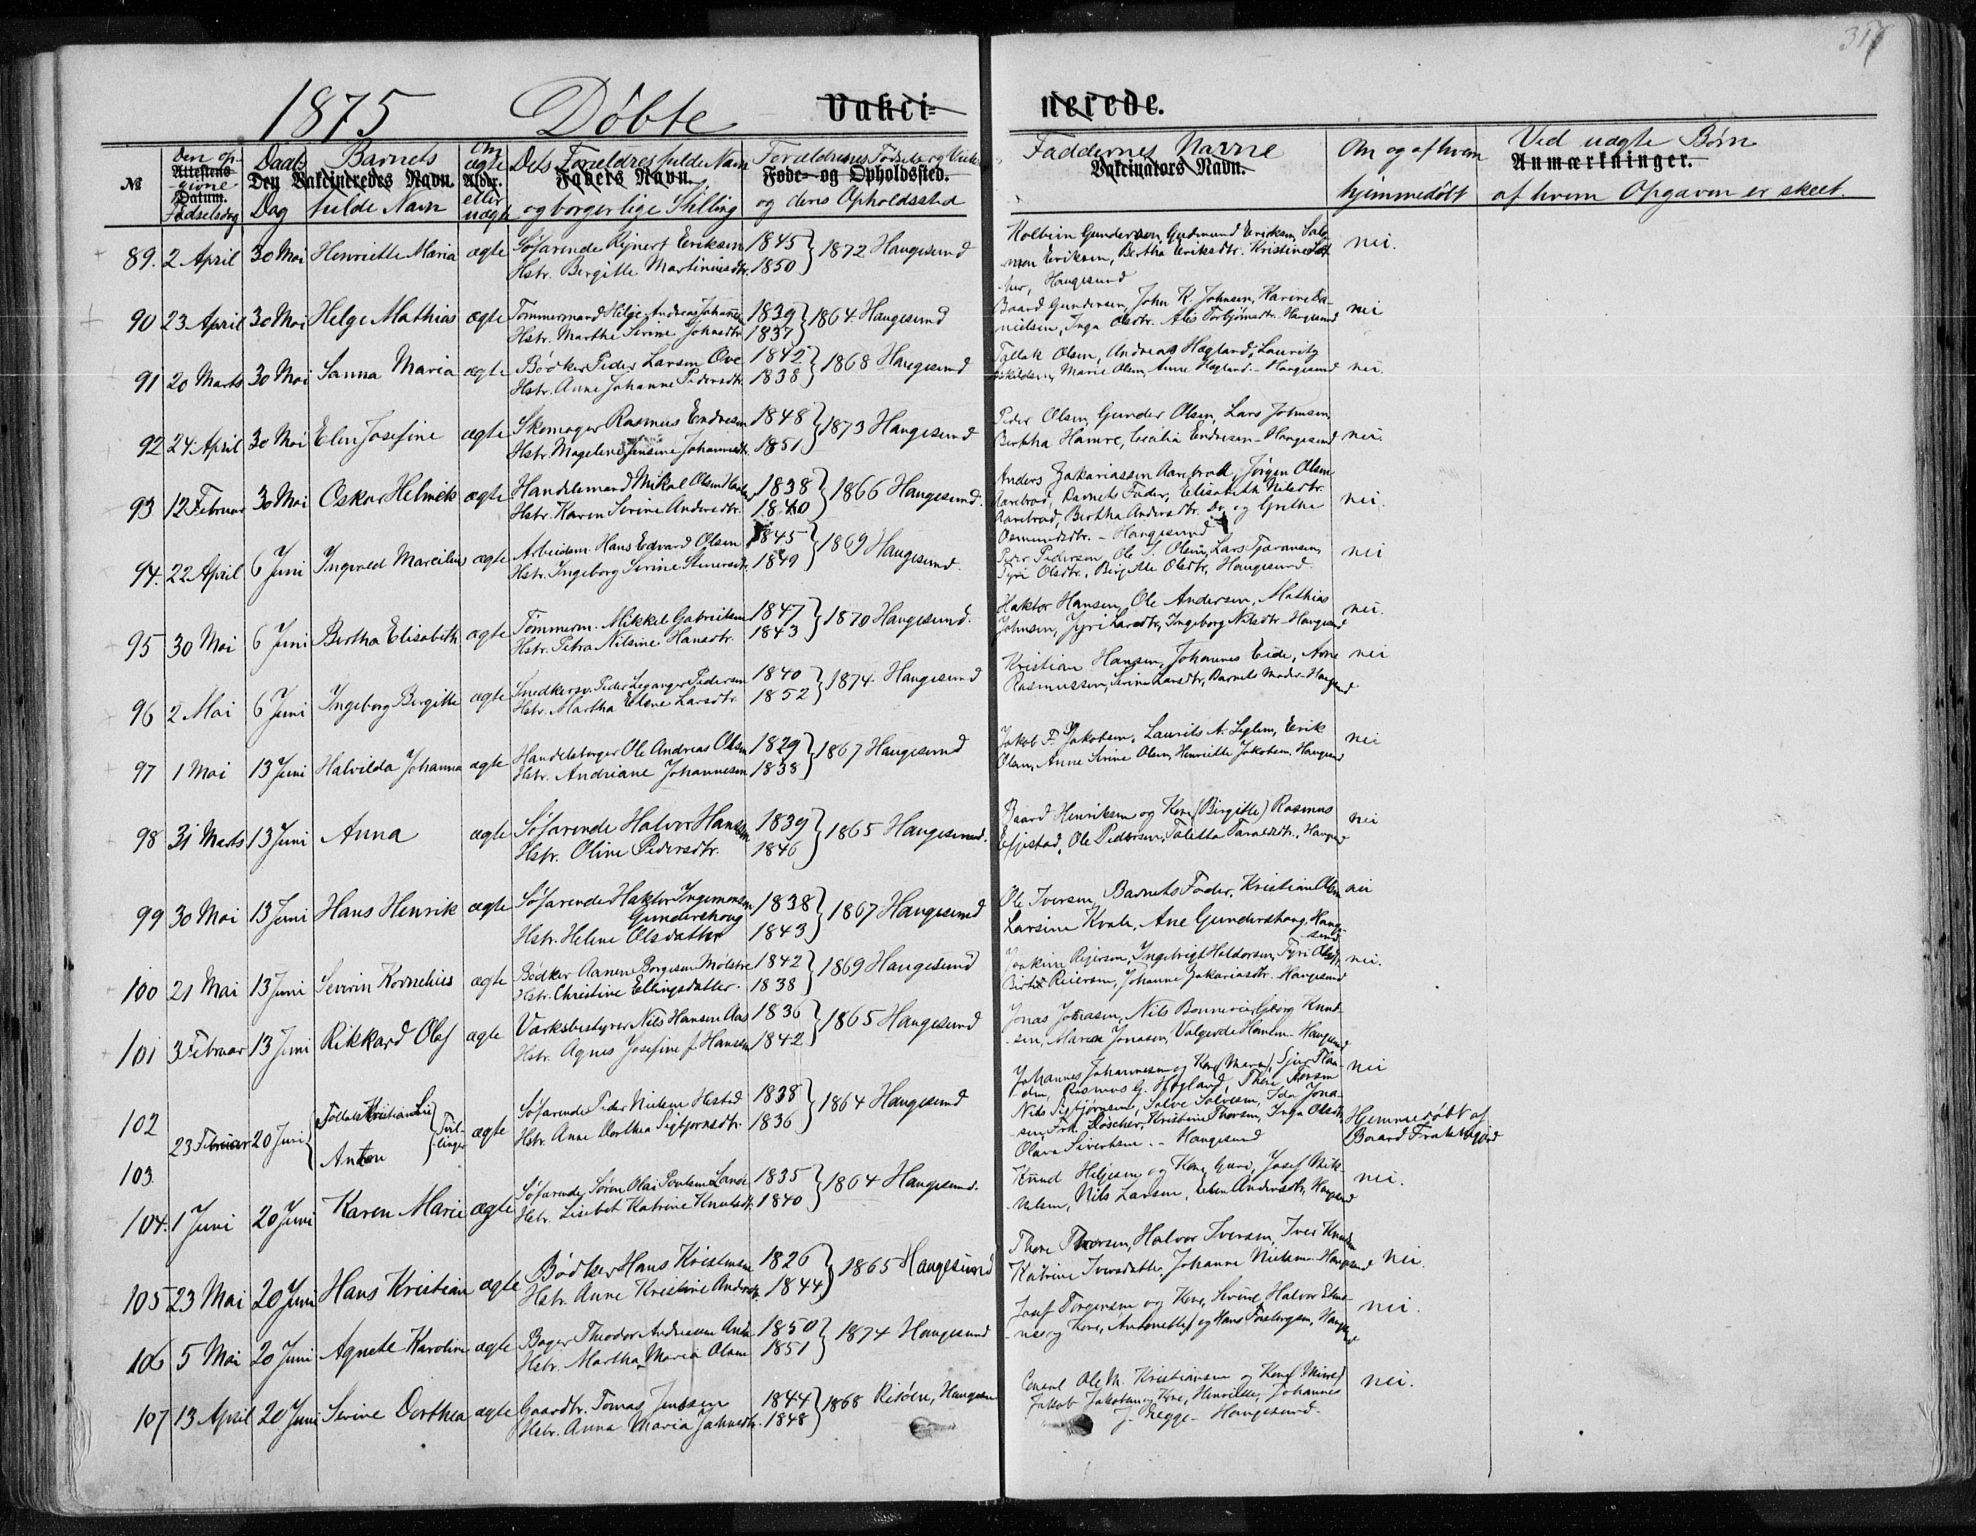 317
1875 Døbte Vakci- nerede.
№ | Den opgivne Fødselsdag Attestens Datum. | Daab: Dag | Barnets fulde Navn Den Vakcineredes Navn. | Om ægte eller uægte Alder. | Dets Forældres fulde Navn og borgerlige Stilling Faders Navn. | Forældrenes Fødselsaar og deres Opholdssted Føde- og Opholdssted. | Faddernes Navne Vakcinators Navn. | Om og af hvem hjemmedøbt | Ved uægte Børn af hvem Opgaven er skeet. Anmærkninger.
89. 2 April 30 Mai Henriette Maria ægte Søfarende Rejnert Eriksen 1845 } 1872 Haugesund
Hstr. Bergitte Martinusdtr. 1850
Kolbein Gundersen, Gudmund Eriksen, nei.
Eriksen, Bertha Eriksdtr. Kristine
Haugesund
90 23 April 30 Mai Helge Mathias ægte Tømmermand Helge Andreas Johannes 1839 } 1864 Haugesund
Hstr. Marthe Serine Johnsdtr. 1837
Baard Gundersen, John K. Johnsen, Karine Da- nei
nielsen, Inga Olsdtr. Alis Torbjørnsdtr. Haugesund
91 20 Marts 30 Mai Sanna Maria ægte Bødker Peder Larsen Ove 1842 } 1868 Haugesund
Hstr. Anne Johanne Pedersdtr. 1838
Tollak Olsen, Andreas Hægland, Lauritz nei.
Eskildsen, Marie Olsen, Anne Hægland - Haugesund
92 24 April 30 Mai Elen Josefine ægte Skomager Rasmus Endresen 1848 } 1873 Haugesund
Hstr. Magelene Jensine Johannesdtr. 1851
Peder Olsen, Gunder Olsen, Lars Johnsen
Bertha Hamre, Cecilia Endresen - Haugesund nei.
93 12 Februar 30 Mai Oskar Helmik ægte Handelsmand Mikal Olsen 1838 } 1866 Haugesund.
Hstr. Karen Serine Andersdtr. 1840
Anders Zakariassen Aarebrod, Jørgen Olsen
Aarebrod, Barnets Fader, Elisabeth Nilsdtr. nei.
Aarebrod, Bertha Andersdtr. Do. og Grethe
Osmundsdtr. - Haugesund
94. 22 April 6 Juni Ingvald Marcilius ægte Arbeidsm. Hans Edvard Olsen 1845 } 1869 Haugesund.
Hstr. Ingeborg Serine Steinersdtr. 1849
Peder Pedersen, Ole S. Olsen, Lars Tjøransen, nei
Tyri Olsdtr., Birgitte Olsdtr., Haugesund.
95 30 Mai 6 Juni Bertha Elisabeth ægte Tømmerm. Mikkel Gabrielsen 1847 } 1870 Haugesund.
Hstr. Petra Nilsine Hansdtr. 1843
Haktor Hansen, Ole Andersen, Mathias nei.
Johnsen, Jyri Larsdtr., Ingeborg Nilsdtr - Haugesund
96 2 Mai 6 Juni Ingeborg Birgitte ægte Snedkersv. Peder Leganger Pedersen 1840 } 1874 Haugesund
Hstr. Martha Elene Larsdtr. 1852
Kristian Hansen, Johannes Eide, Arne nei
Rasmussen, Serine Larsdtr., Barnets Moder - Haugesund
97 1 Mai 13 Juni Halvilda Johanna ægte Handelsborger Ole Andreas Olsen 1829 } 1867 Haugesund
Hstr. Andriane Johannesen 1838
Jakob F. Jakobsen, Laurits A. Liglem, Erik nei
Olsen, Anne Serine Olsen, Henriette Jakobsen, Haugesund
98 31 Marts 13 Juni Anna ægte Søfarende Halvor Hansen 1839 } 1865 Haugesund.
Hstr. Oline Pedersdtr. 1846
Baard Henriksen og Kone (Birgitte) Rasmus nei
Ole Pedersen, Taletta Taraldsdtr., Haugesund
99 30 Mai 13 Juni Hans Henrik ægte Søfarende Haktor Ingemonsen 1838 } 1867 Haugesund
Gundershoug
Hstr. Helene Olsdatter 1843
Ole Iversen, Barnets Fader, Kristian Olsen nei
Larsine Kvale, Ane Gundershoug, Hauge-
sund
100 21 Mai 13 Juni Severin Kornelius ægte Bødker Aanen Børgesen Mølstre 1842 } 1869 Haugesund
Hstr. Christine Ellingsdatter. 1838
Joakim Rejersen, Ingebrigt Haldorsen, Tyri Olsdtr., nei.
Reiersen, Johanne Zakariasdtr. Haugesund
101 3 Februar 13 Juni Rikkard Olaf ægte Værksbestyrer Nils Hansen Aas 1836 } 1865 Haugesund
Hstr. Agnes Josefine f. Hansen 1842
Jonas Jonasen, Nils Bonnevie, Georg Knud-
sen, Maren Jonasen, Valgerde Hansen - Haugesund
102 23 Februar 20 Juni Tollak Kristian Lie } Tvil-
103 Anton } linger ægte Søfarende Peder Nielsen Hestad 1838 } 1864 Haugesund
Hstr. Anne Dorthea Sigbjørnsdtr. 1836
Johannes Johannesen og Kone (Maren), Sjur nei
Rasmus G. Høgland, Thore Iversen
Nils Sigbjørnsen, Salve Salvesen, Ida Jona-
sen, Frk. Løscher, Kristine Thorsen, Inga Olsdtr., Hjemmedøbt af
Olava Sivertsen. - Haugesund Baard
104. 1 Juni 20 Juni Karen Marie ægte Søfarende Søren Olai Poulsen 1835 } 1864 Haugesund.
Hstr. Lisebet Katrine Knutsdtr. 1840
Knud Helgesen og Kone Guri, Josef Mik- nei.
Nils Larsen, Elen Andersdtr., Haugesund
105 23 Mai 20 Juni Hans Kristian ægte Bødker Hans Kristensen 1826 } 1865 Haugesund
Hstr. Anne Kristine Andersdtr. 1844
Thore Thorsen, Halvor Iversen, Iver Knudsen
Katrine Iversdatter, Johanne Nielsen - Haugesund nei.
106 5 Mai 20 Juni Agnete Karoline ægte Bager Theodor Andreasen 1850 } 1874 Haugesund
Hstr. Martha Maria Olsen 1851
Josef Torgersen og Kone, Serine, Halvor nei.
og Kone, Antonette og Hans Torbergsen, Haugesund
107 13 April 20 Juni Serine Dorthea ægte Gaardbr. Tomas Jensen 1844 } 1868 Risøen, Haugesund
Hstr. Anna Maria Jahnsdtr. 1848
Ole M. Kristiansen og Kone (Mine) nei.
Jakob Jakobsen, Kone, Henrikke, Johannes
J. Egge - Haugesund.